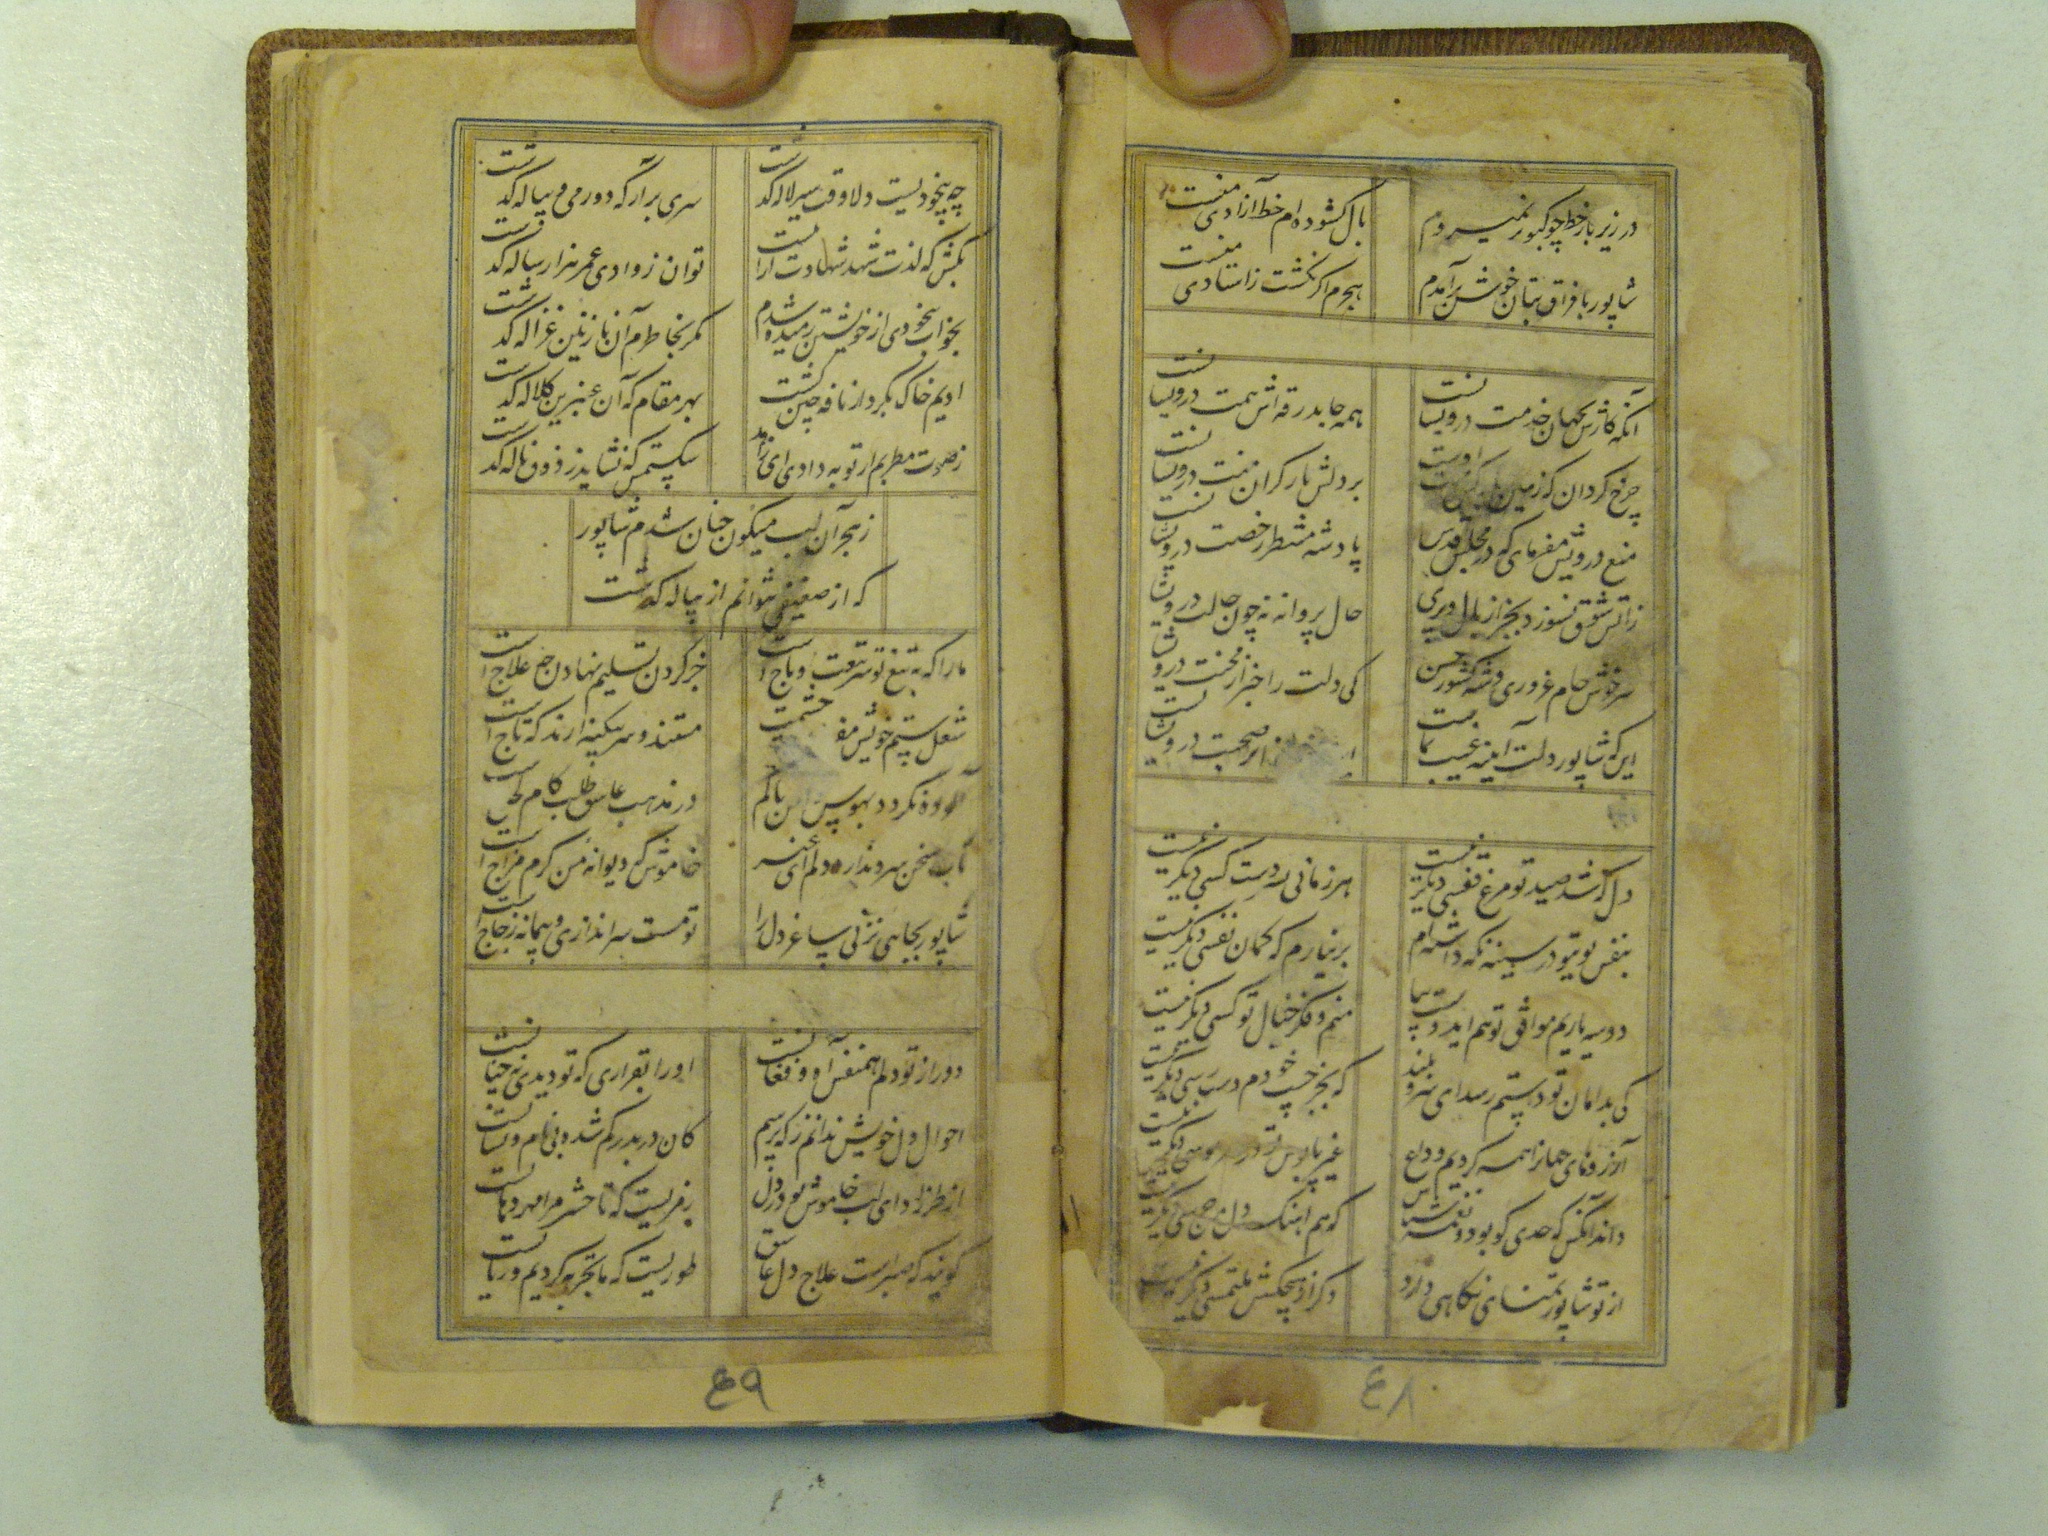 در زیر بار خط چو کبوتر نمیروم
بال کشوده‌ام خط آزادی منست
شاپور با فراق بتان خوش برآمدم
هجرم اگر نکشت ز استادی منست
آنکه کارش بجهان خدمت درویشانست
همه جا بدرقه‌اش همت درویشانست
چرخ گردان که زمین
بر دلش بار گران منت درویشانست
منع درویش مفرمای که در مجلس قدس
پادشه منتظر رخصت درویشانست
زآتش شوق نسوزد بجز از بال و پری
حال پروانه نه چون حالت درویشانست
سرخوش جام غروری و شه کشور حسن
کی دلت را خبر از محنت درویشانست
این که شاپور دلت آینه غیب نماست
اثر صحبت درویشانست
دل که شد صید تو مرغ قفسی دیگر نیست
هر زمانی به دست کسی دیگر نیست
بنفس بوی تو در سینه نگه داشته‌ام
بر نیارم که گمان نفسی دیگر نیست
دو سه یاریم موافق تو هم ای دوست بیا
منم و فکر و خیال تو کسی دیگر نیست
کی بدامان تو دستم رسد ای سرو بلند
که بجز جیب خودم دسترسی دیگر نیست
آرزوهای جهان را همه کردیم وداع
غیر پابوس تو در سر هوسی دیگر نیست
داند آنکس که حدی گو بود و نغمه شناس
که هم آهنگ دل من جرسی دیگر نیست
از تو شاپور تمنای نگاهی دارد
دگر از هیچکسش ملتمسی دیگر نیست
۴۸
چه بیخودیست دلا وقت سیر لاله گذشت
سری برآر که دور می و پیاله گذشت
بکش که لذت شهد شهادت ار اینست
توان ز وادی عمر هزار ساله گذشت
بخواب بیخودی از خویشتن رمیده شدم
مگر بخاطرم آن نازنین غزاله گذشت
ادیم خاک بکردار نافه چین گشت
بهر مقام که آن عنبرین کلاله گذشت
ز صوت مطربم ار توبه دادی ای زاهد
ستمکش که نشاید ز ذوق ناله گذشت
ز هجر آن لب میگون چنان شدم شاپور
که از ضعیفی نتوانم از پیاله گذشت
ما را که به تیغ تو سر تعب و باج است
جز گردن تسلیم نهادن چه علاج است
شغل ستم خویش
مسند و سر
آلوده نگردد بهوس دامن پاکم
در مذهب عاشق طلب کام
تاب سخن سرد ندارد دلم ای
خاموش که دیوانه من گرم مزاج است
شاپور بجایی نزنی ساغر دل را
تو مست سراندازی و پیمانه زجاج است
دور از تو دلم همنفس آه و فغانست
او را بقراری که تو دیدی نه چنانست
احوال دل خویش ندانم ز که پرسم
کان دربدر گم شده بی نام و نشانست
از طرز ادای لب خاموش تو در دل
رمزیست که تا حشر مرا مهر دهانست
گویند که صبر است علاج دل عاشق
طوریست که ما تجربه کردیم و زیانست
۴۹